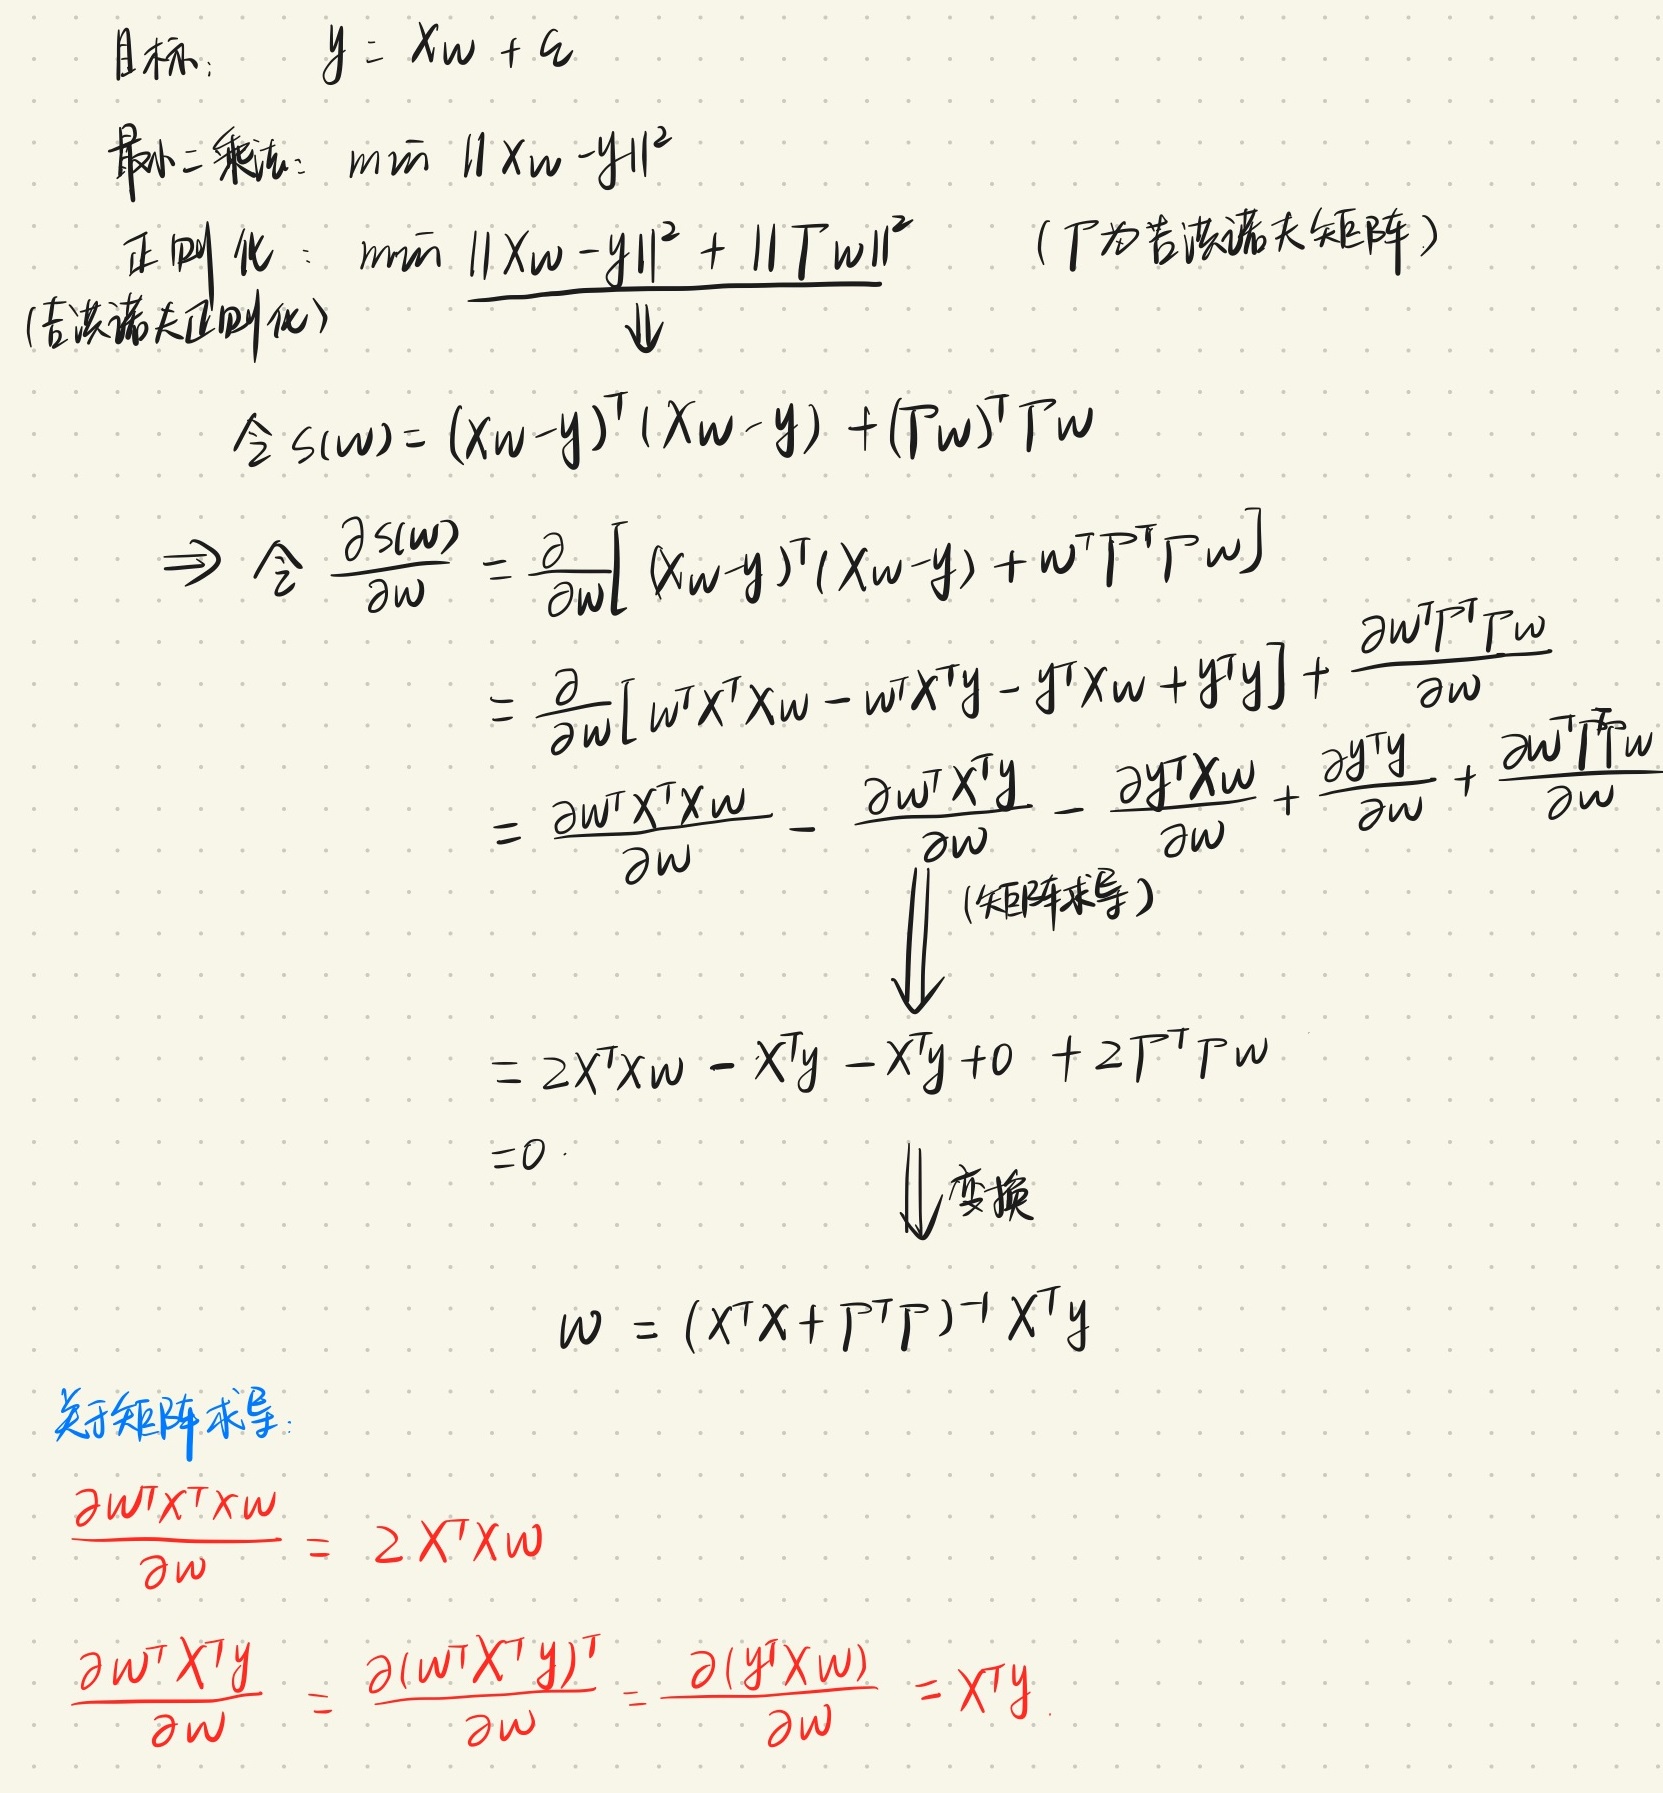 目标: y = Xw + ε
最小二乘法: min ||Xw - y||²
正则化: min ||Xw - y||² + ||Γw||² (Γ为吉洪诺夫矩阵)
(吉洪诺夫正则化)
⇓
令 S(w) = (Xw-y)ᵀ(Xw-y) + (Γw)ᵀΓw
⇒ 令 ∂S(w)/∂w = ∂/∂w[(Xw-y)ᵀ(Xw-y) + wᵀΓᵀΓw]
= ∂/∂w[wᵀXᵀXw - wᵀXᵀy - yᵀXw + yᵀy] + ∂wᵀΓᵀΓw/∂w
= ∂wᵀXᵀXw/∂w - ∂wᵀXᵀy/∂w - ∂yᵀXw/∂w + ∂yᵀy/∂w + ∂wᵀΓᵀΓw/∂w
⇓ (矩阵求导)
= 2XᵀXw - Xᵀy - Xᵀy + 0 + 2ΓᵀΓw
= 0.
⇓ 变换
w = (XᵀX + ΓᵀΓ)⁻¹Xᵀy
关于矩阵求导:
∂wᵀXᵀXw/∂w = 2XᵀXw
∂wᵀXᵀy/∂w = ∂(wᵀXᵀy)ᵀ/∂w = ∂(yᵀXw)/∂w = Xᵀy.